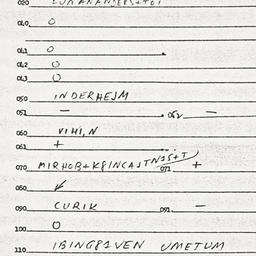 020
040. 0
041 0
042 0
043 0
050 INDERHEIM
051 — 052 —
060 VIHI,N
061 +
070 MIRHOB+K8INCAJTN15+T 071 +
080
090 CURIK 091. —
100 0
110 IBING81VEN UMETUM